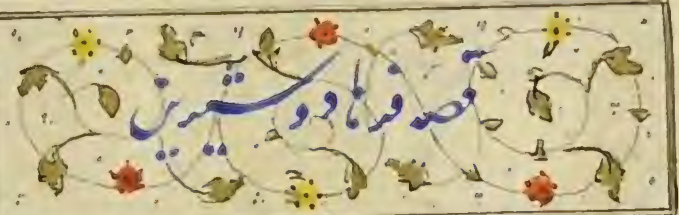 قصه فرهاد و شیرین